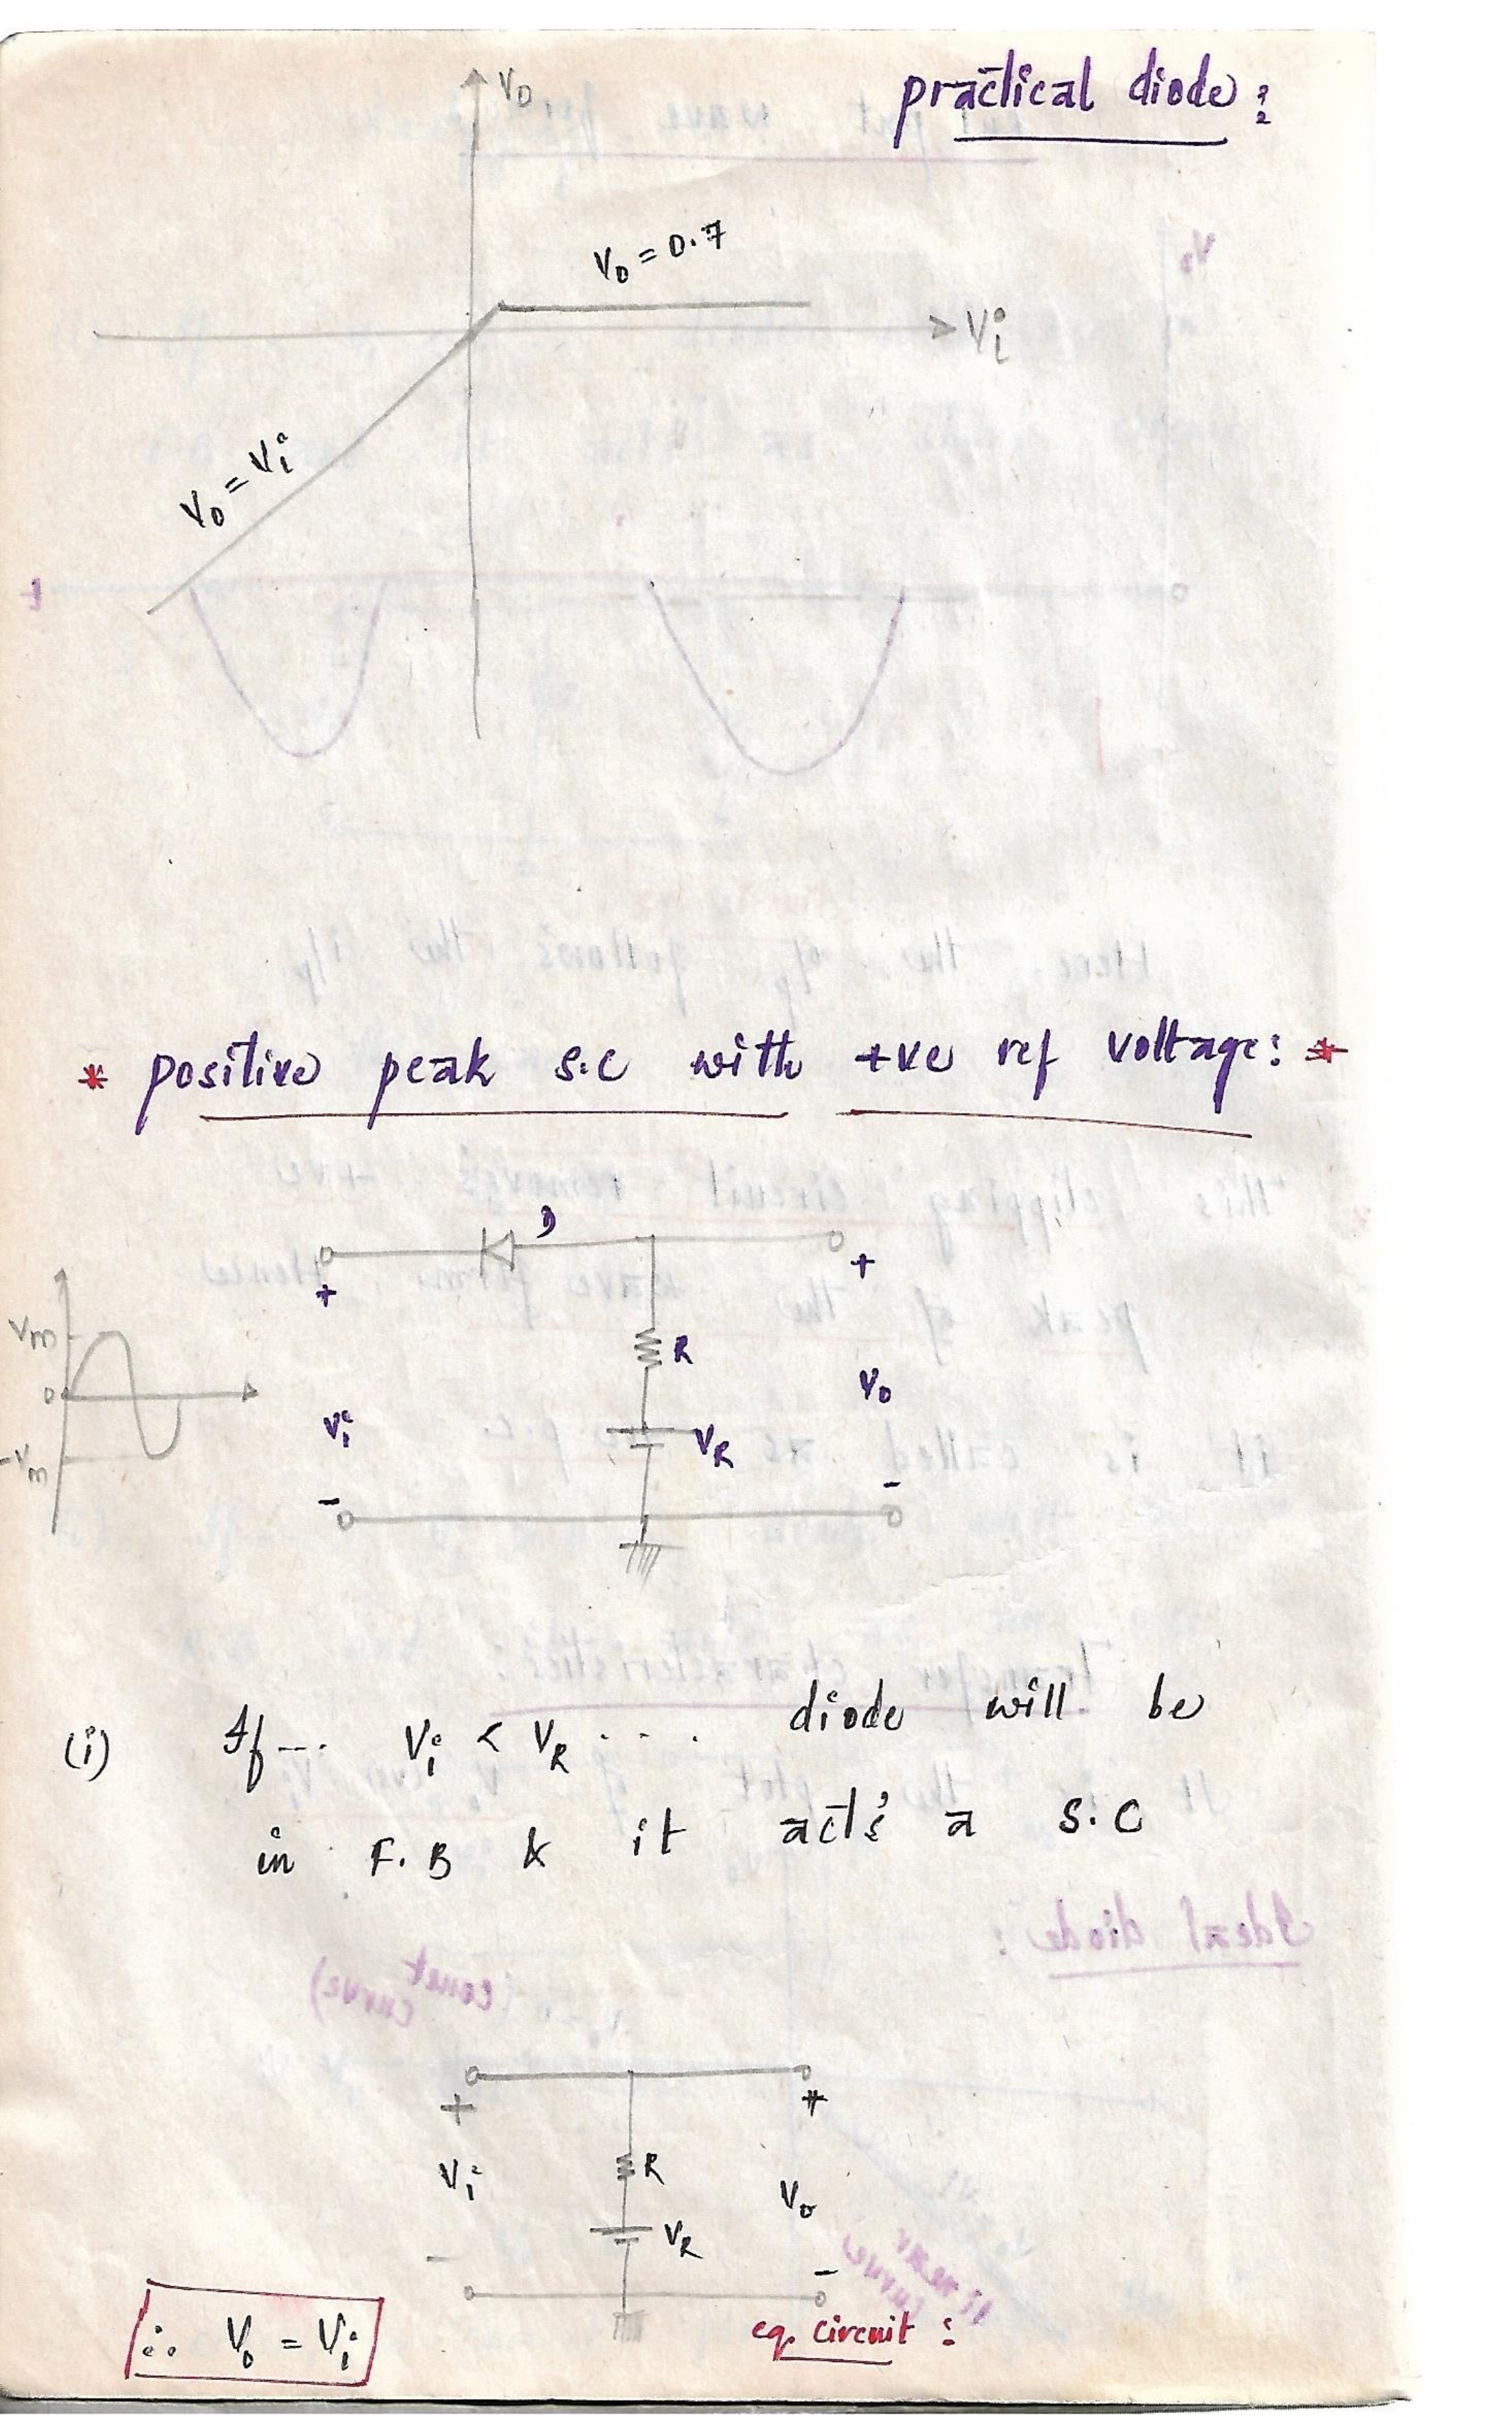 practical diode :
V₀
V₀ = 0.7
Vi
V₀ = Vi
* positive peak s.c with +ve ref voltage: *
D
+
+
Vm
R
0
V₀
Vi
VR
-Vm
-
-
(i) If --- Vi < VR .... diode will be
in F.B & it act's a S.C
+
+
R
Vi
V₀
VR
-
-
eq. circuit :
∴ V₀ = Vi